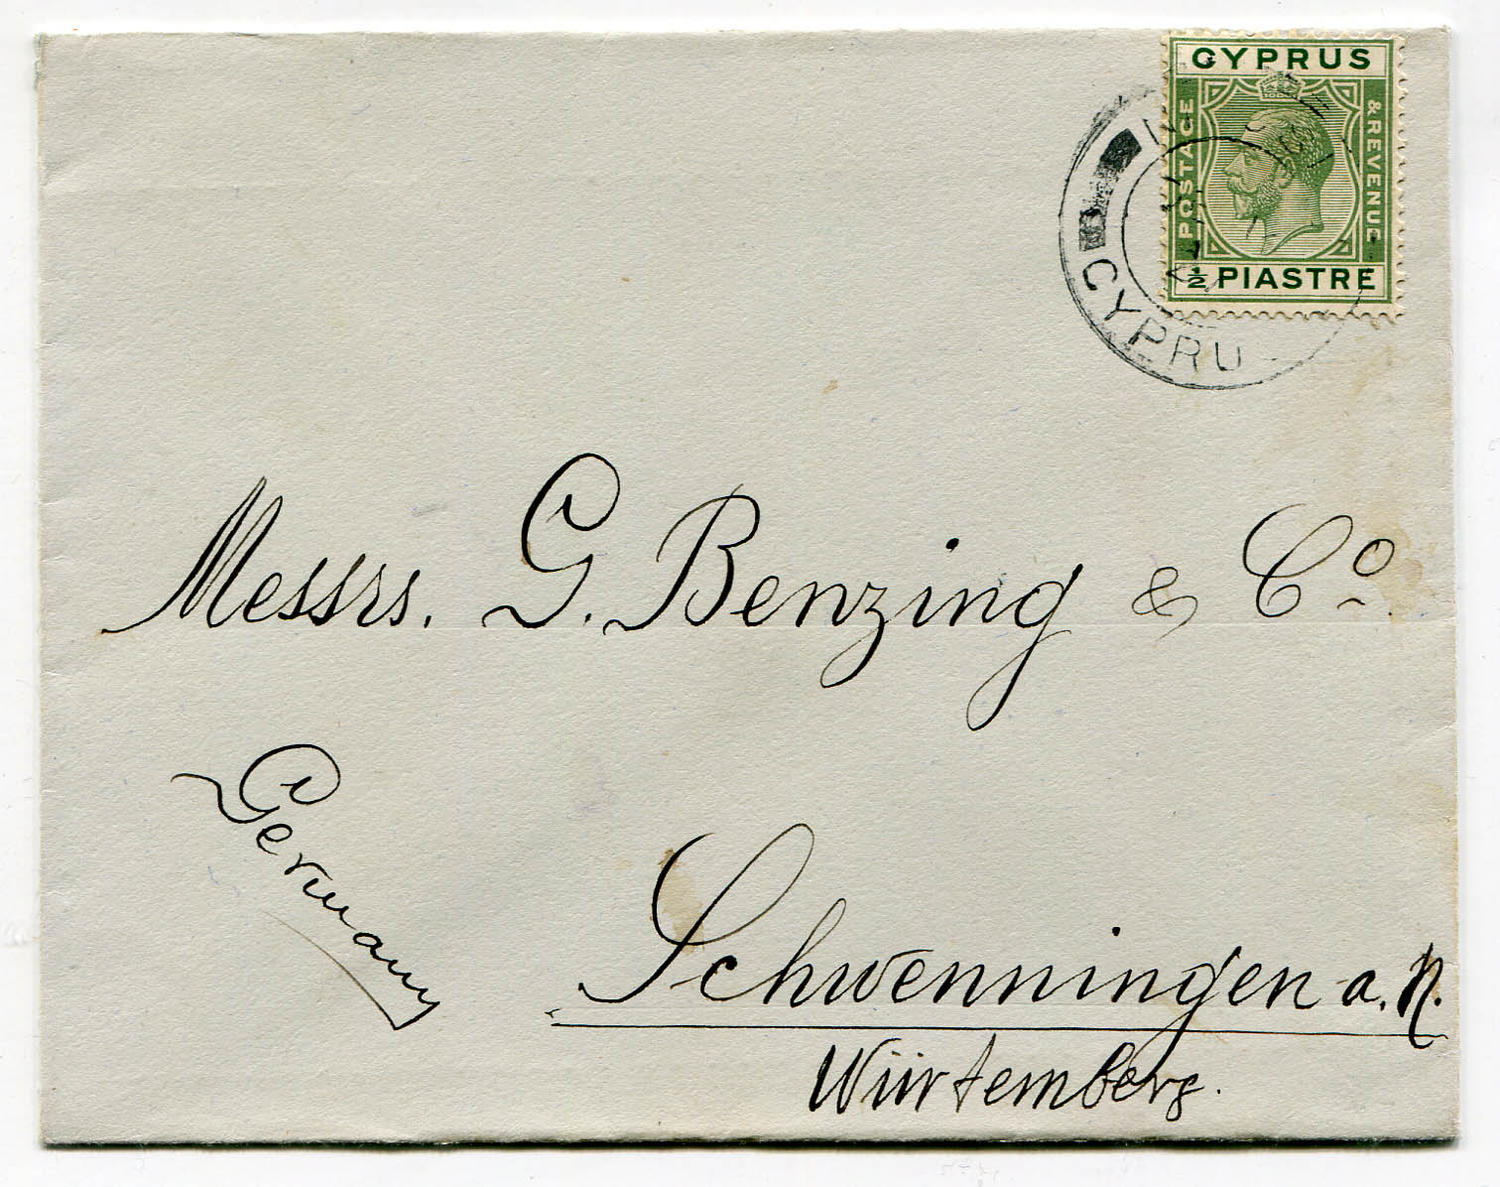 CYPRUS
POSTAGE
& REVENUE
½ PIASTRE
CYPRU
Messrs. G. Benzing & Co.
Germany
Schwenningen a. N.
Würtemberg.